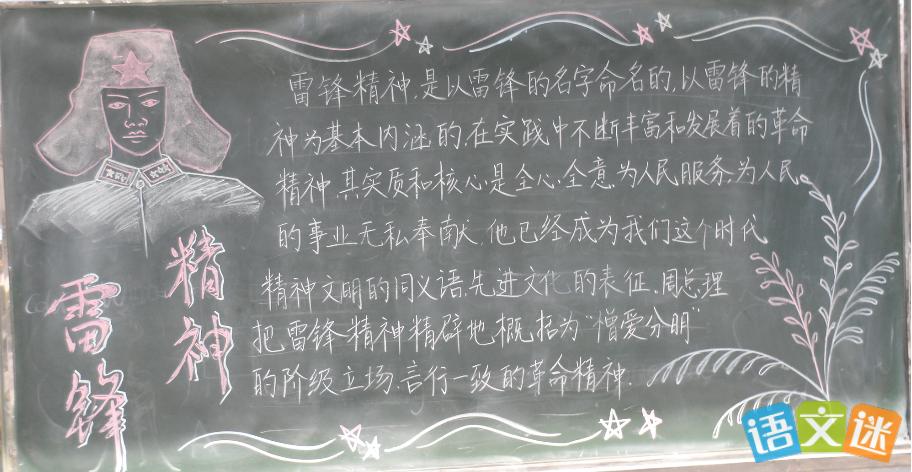 雷锋精神,是以雷锋的名字命名的,以雷锋的精
神为基本内涵的,在实践中不断丰富和发展着的革命
精神,其实质和核心是全心全意为人民服务,为人民
的事业无私奉献.他已经成为我们这个时代
精神文明的同义语,先进文化的表征.周总理
把雷锋精神精辟地概括为“憎爱分明”
的阶级立场.言行一致的革命精神.
雷锋
精神
语文迷